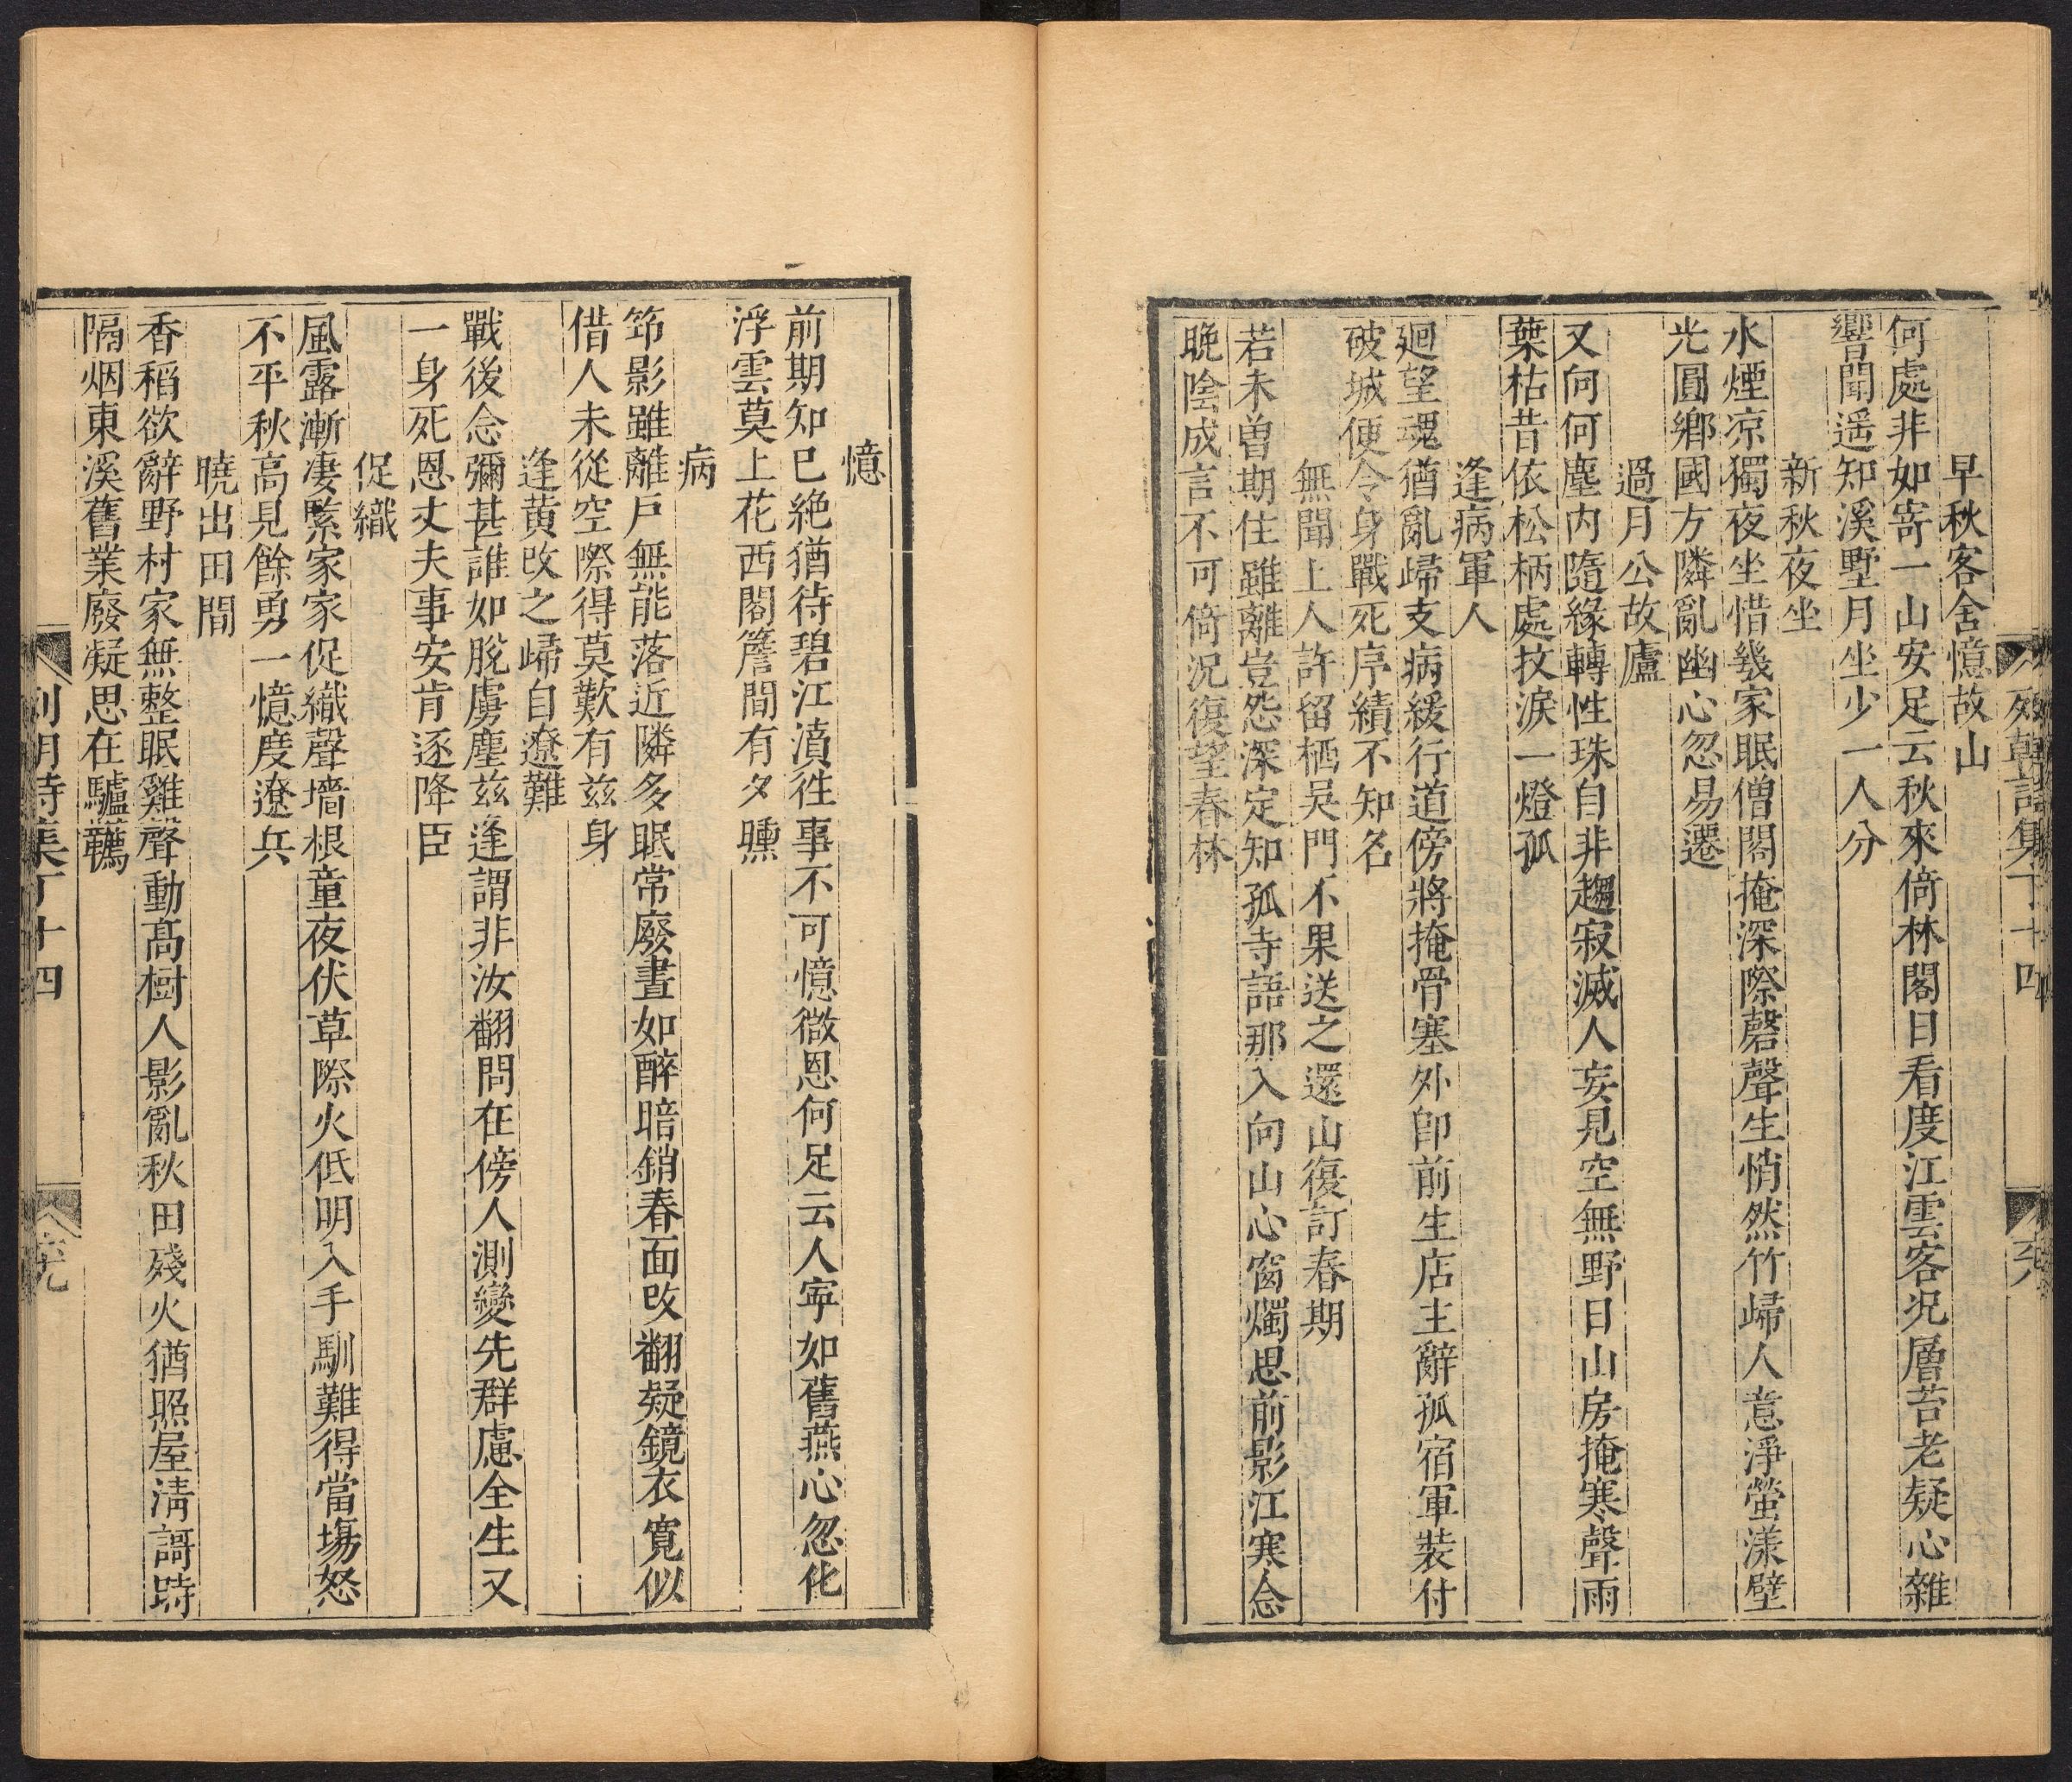 早秋客舍憶故山
何處非如寄一山安足云秋來倚林閣日看度江雲客況層苔老疑心雜
響聞遥知溪墅月坐少一人分
新秋夜坐
水煙凉獨夜坐惜幾家眠僧閣掩深際磬聲生悄然竹歸人意淨螢漾壁
光圓鄉國方隣亂幽心忽易遷
過月公故廬
又向何塵内隨緣轉性珠自非趨寂滅人妄見空無野日山房掩寒聲雨
葉枯昔依松柄處抆淚一燈孤
逢病軍人
廻望魂猶亂歸支病緩行道傍將掩骨塞外卽前生店主辭孤宿軍裝付
破城便令身戰死序績不知名
無聞上人許留栖吴門不果送之還山復訂春期
若未曽期住雖離豈怨深定知孤寺語那入向山心窗燭思前影江寒念
晚陰成言不可倚況復望春林
列朝詩集丁十四
憶
前期知已絶猶待碧江濆徃事不可憶微恩何足云人寕如舊燕心忽化
浮雲莫上花西閣簷間有夕曛
病
笻影雖離戸無能落近隣多眠常廢晝如醉暗銷春面改翻疑鏡衣寛似
借人未從空際得莫歎有兹身
逢黄改之歸自遼難
戰後念彌甚誰如脫虜塵兹逢謂非汝翻問在傍人測變先群慮全生又
一身死恩丈夫事安肯逐降臣
促織
風露漸凄緊家家促織聲墻根童夜伏草際火低明入手馴難得當塲怒
不平秋高見餘勇一憶度遼兵
曉出田間
香稻欲辭野村家無整眠雞聲動髙樹人影亂秋田殘火猶照屋淸謌時
隔烟東溪舊業廢凝思在驢韉
列朝詩集丁十四